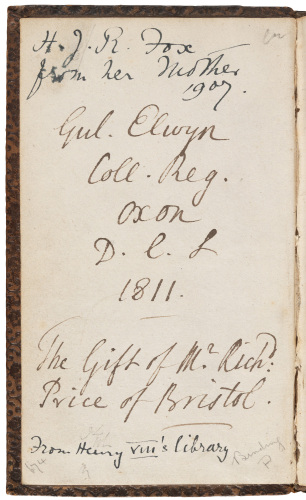 H. J. R. Fox
from her Mother
1907.
Gul. Elwyn
Coll. Reg.
Oxon
D. C. L
1811.
The Gift of Mr. Richd.
Price of Bristol.
From Henry VIII's library